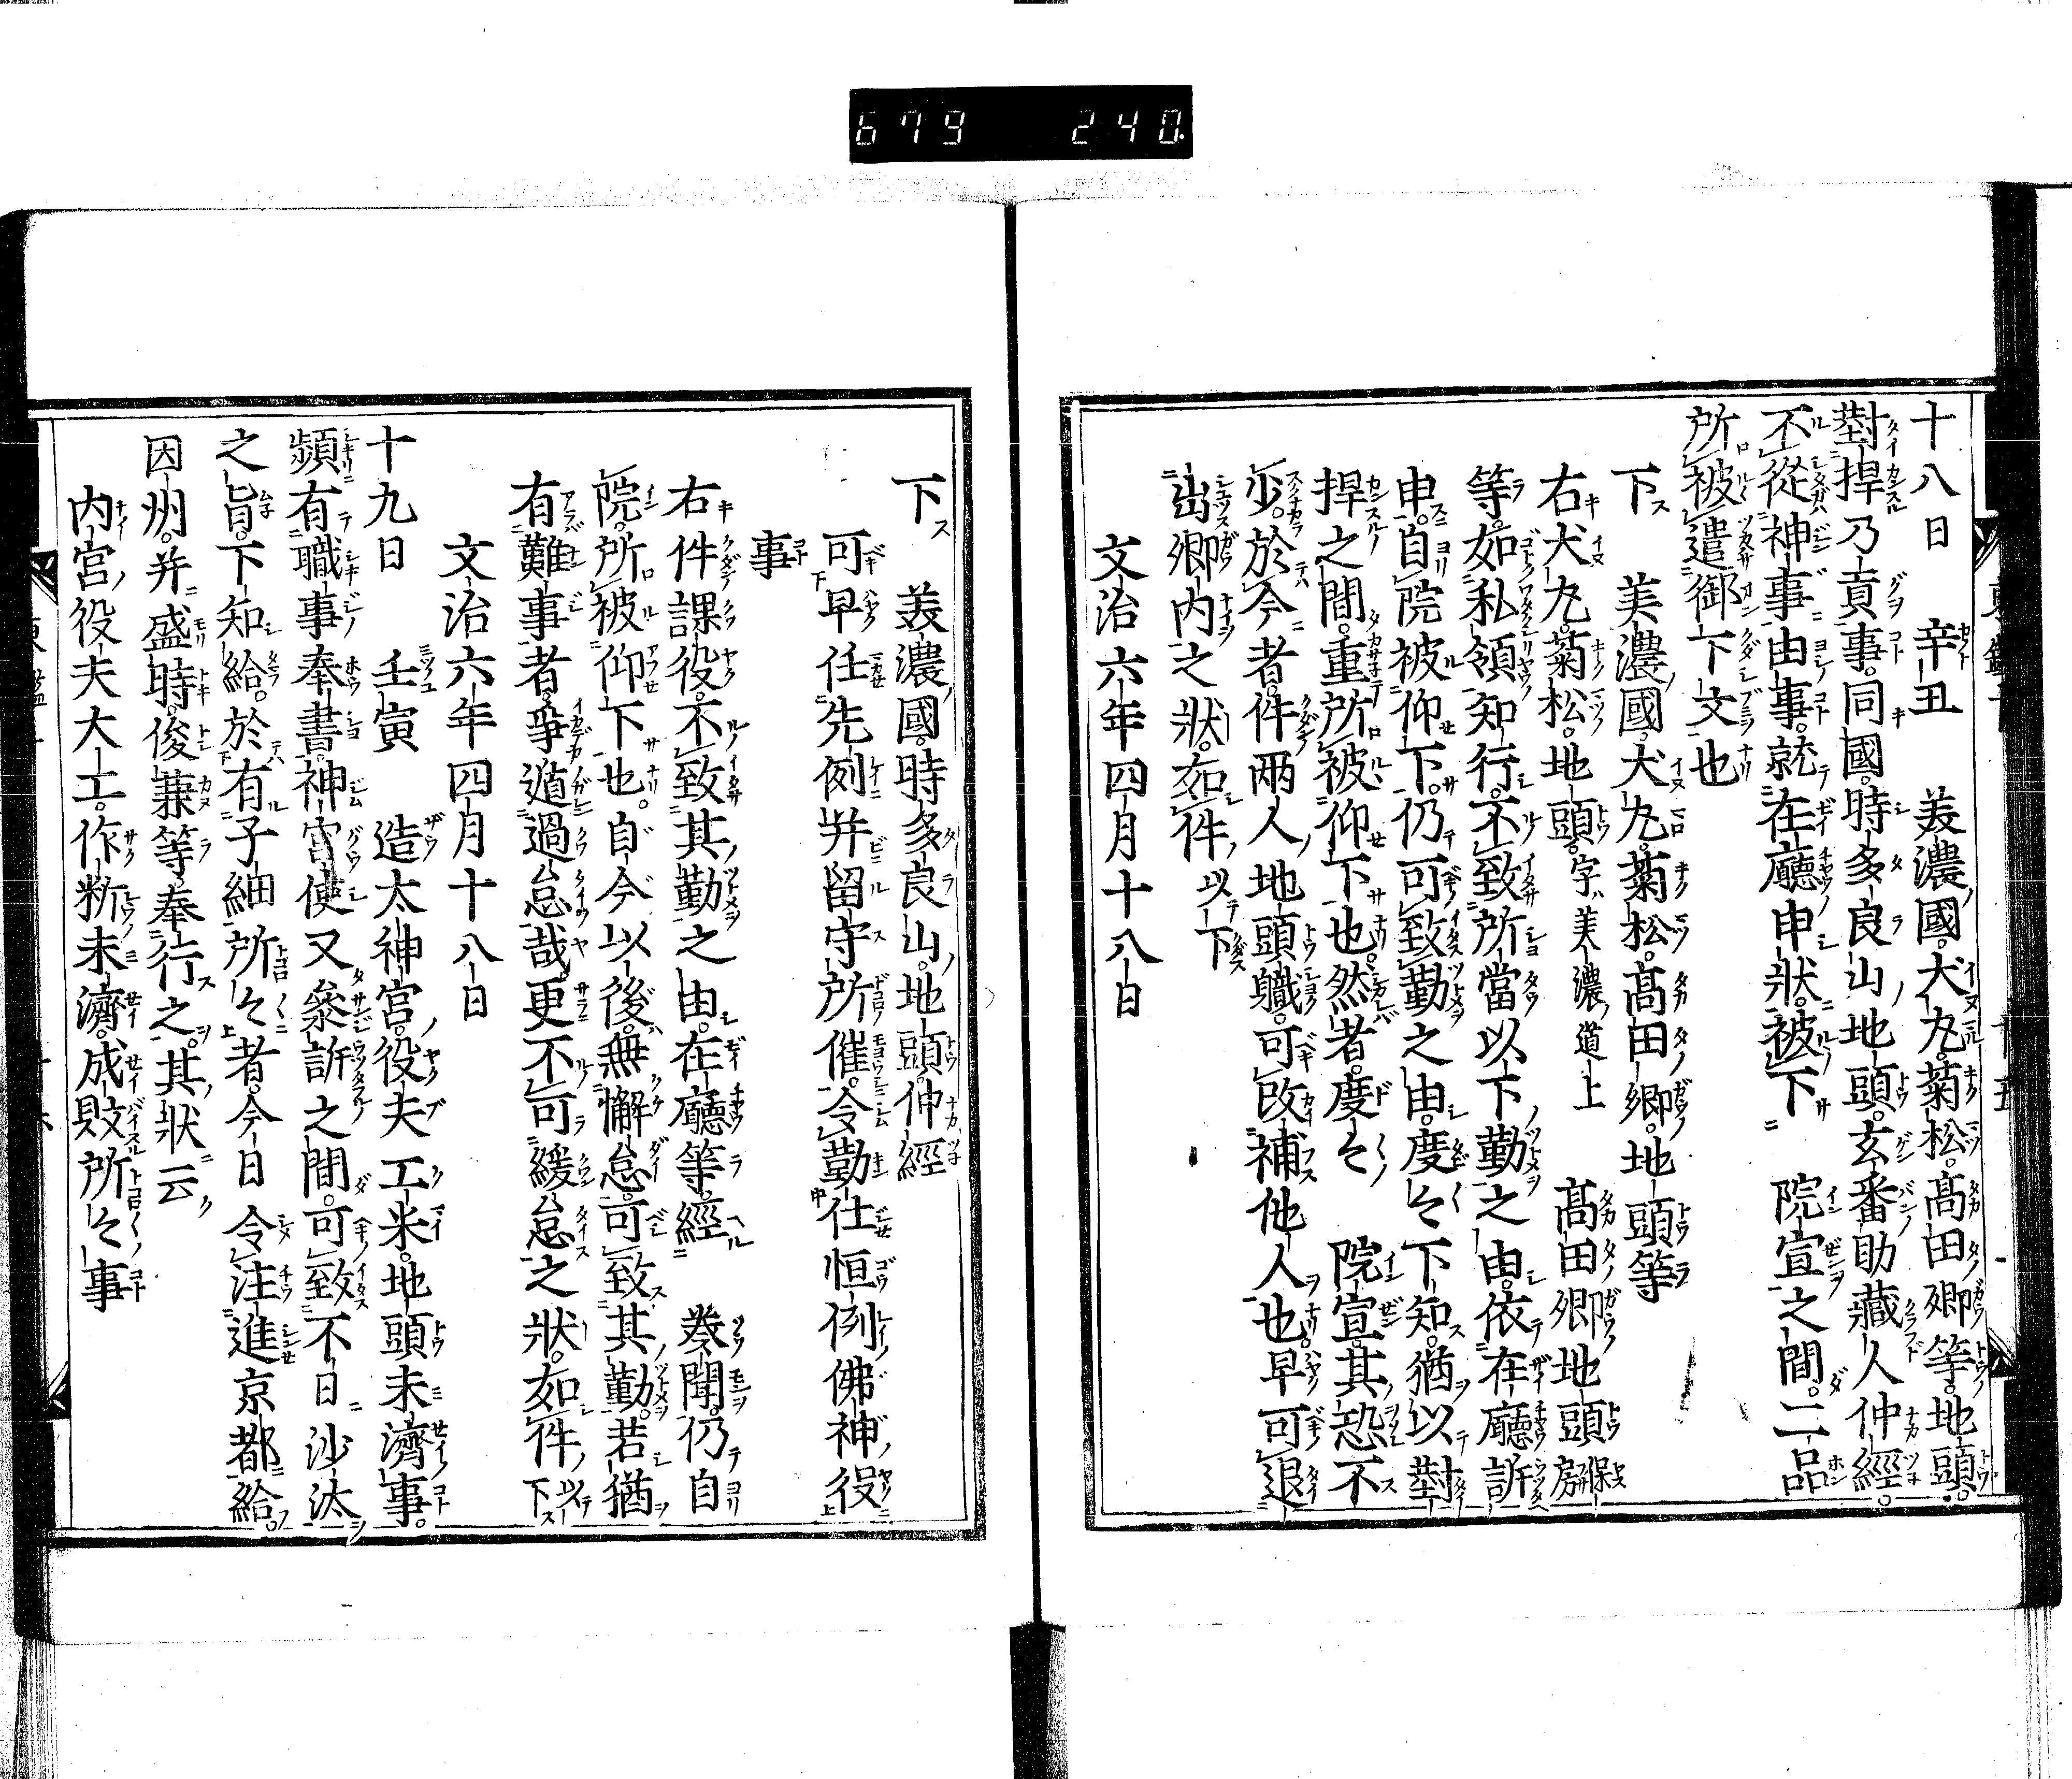 679 240
十八日 辛丑 美濃國犬丸菊松髙田郷等地頭
對捍乃貢事同國時多良山地頭玄番助藏人仲經
不從神事由事就在廳申狀被下 院宣之間二品
所被遣御下文也
下 美濃國犬丸菊松髙田郷地頭等
右犬丸菊松地頭字美濃道上 髙田郷地頭保房
等如私領知行不致所當以下勤之由依在廳訴
申自院被仰下仍可致勤之由度々下知猶以對
捍之間重所被仰下也然者度々 院宣其恐不
少於今者件兩人地頭職可改補他人也早可退
出郷内之狀如件以下
文治六年四月十八日
下 美濃國時多良山地頭仲經
可早任先例并留守所催令勤仕恒例佛神役
事
右件課役不致其勤之由在廳等經 奏聞仍自
院所被仰下也自今以後無懈怠可致其勤若猶
有難事者爭遁過怠哉更不可緩怠之狀如件以下
文治六年四月十八日
十九日 壬寅 造太神宮役夫工米地頭未濟事
頻有職事奉書神宮使又參訴之間可致不日沙汰
之旨下知給於有子細所々者今日令注進京都給
因州并盛時俊兼等奉行之其狀云
内宮役夫大工作料未濟成敗所々事